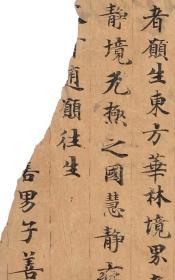 者願生東方華林境界
靜境无極之國慧靜
適願往生
善男子善